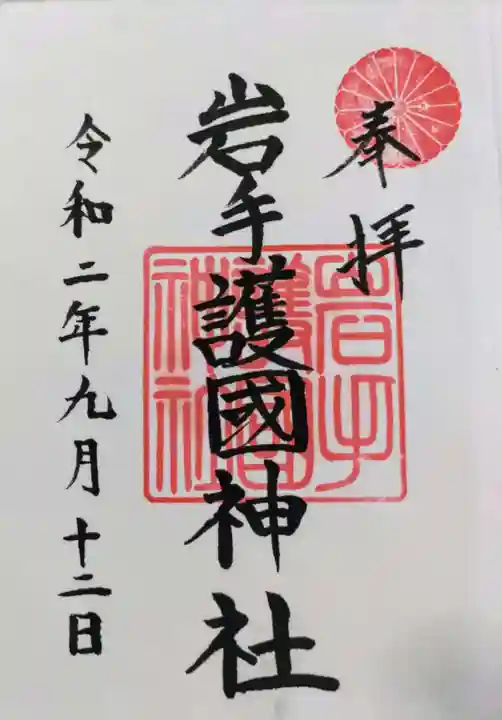 奉拝
岩手護國神社
令和二年九月十二日
岩手
護國
神社